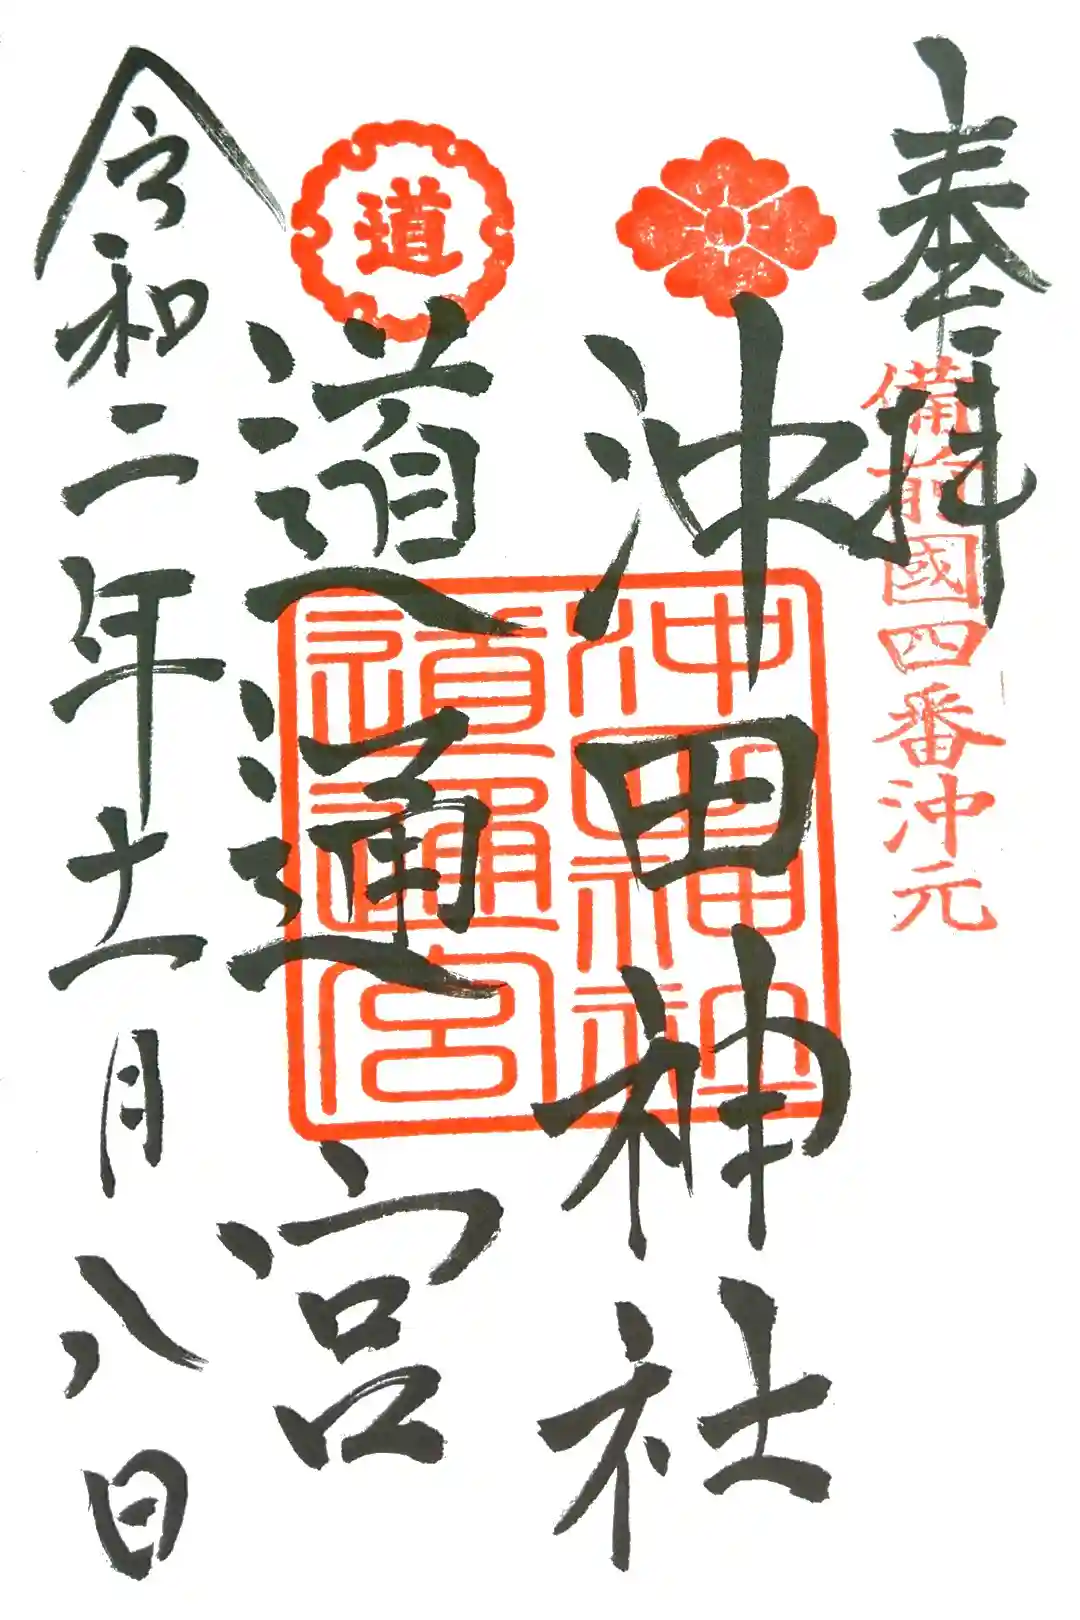 奉拝
備前國四番沖元
沖田神社
道
道通宮
沖田神社
道通宮
令和二年十一月八日